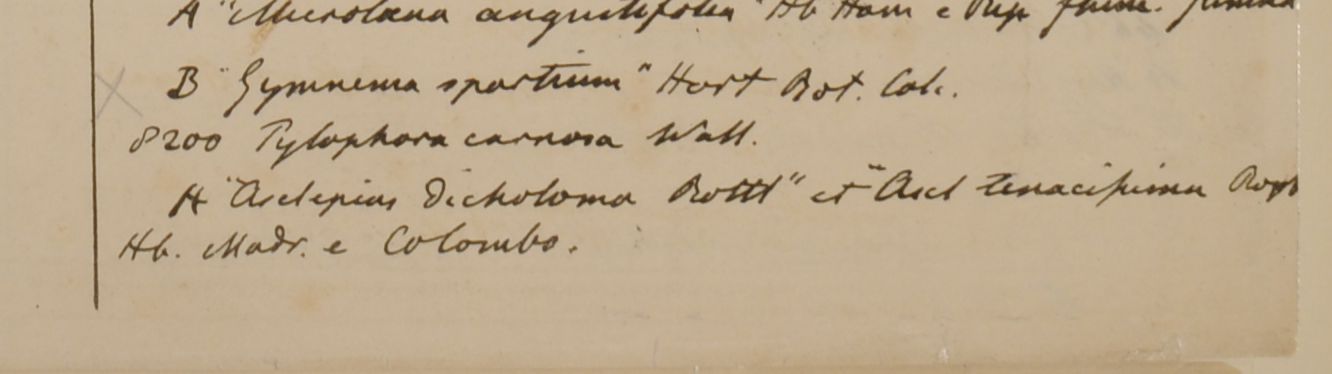 A "Microlæna angustifolia" Hb Ham e
B "Gymnema spartium" Hort Bot. Cal.
8200 Tylophora carnosa Wall.
A "Asclepias dichotoma Rottl" et "Ascl tenacissima Roxb
Hb. Madr. e Colombo.